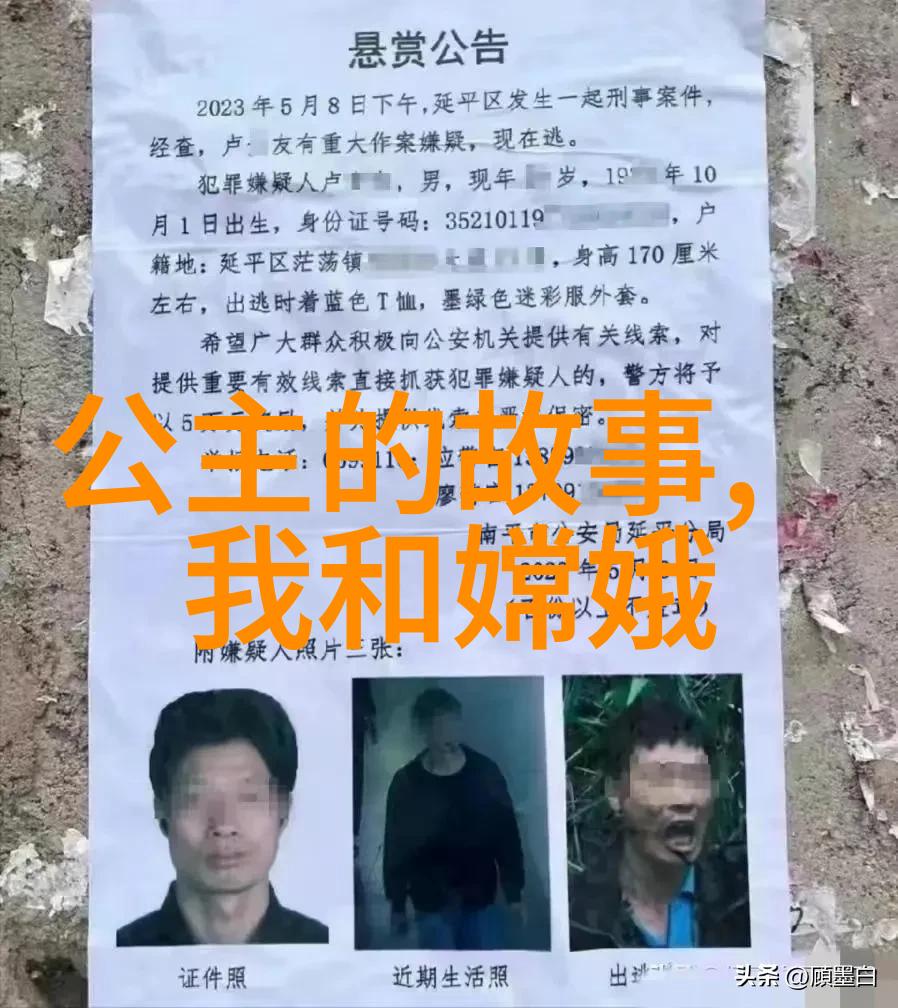 悬赏公告
2023年5月8日下午,延平区发生一起刑事案件,
经查,卢 友有重大作案嫌疑,现在逃。
犯罪嫌疑人卢 ,男,现年 岁,19 年10
月1日出生,身份证号码:35210119 ,户
籍地:延平区茫荡镇 ,身高170厘米
左右,出逃时着蓝色T恤,墨绿色迷彩服外套。
希望广大群众积极向公安机关提供有关线索,对
提供重要有效线索直接抓获犯罪嫌疑人的,警方将予
以5 保密。
公主的故事,
我和嫦娥
公安局延平分局
附嫌疑人照片三张:
证件照
近期生活照
出逃
头条 @顾墨白